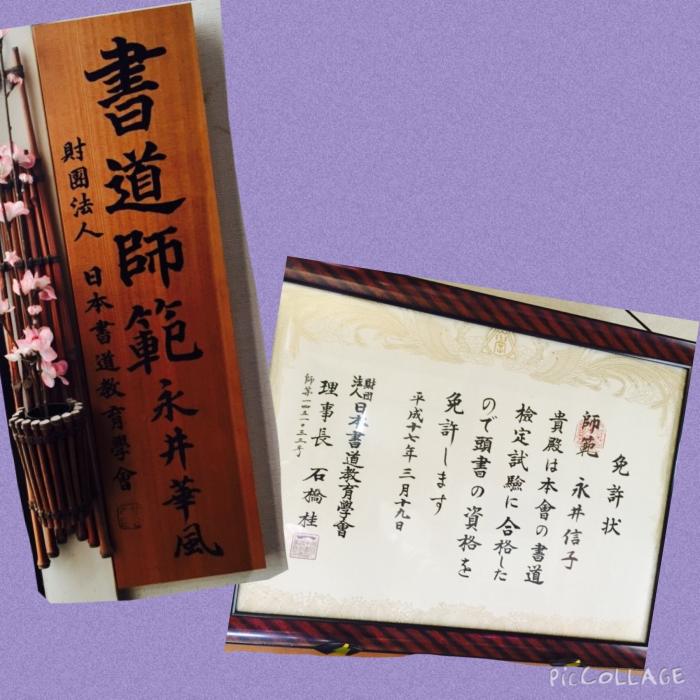 書道師範 永井華風
財團法人 日本書道教育學會
免許状
師範 永井信子
貴殿は本會の書道
檢定試験に合格した
ので頭書の資格を
免許します
平成十七年三月十九日
財団法人日本書道教育學會
理事長 石橋桂
PicCOLLAGE